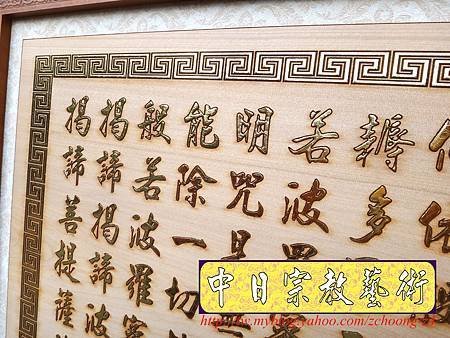 依
耨多
若波羅
明咒是
能除一切
般若波羅蜜
揭諦揭諦波
揭諦菩提薩
中日宗教藝術